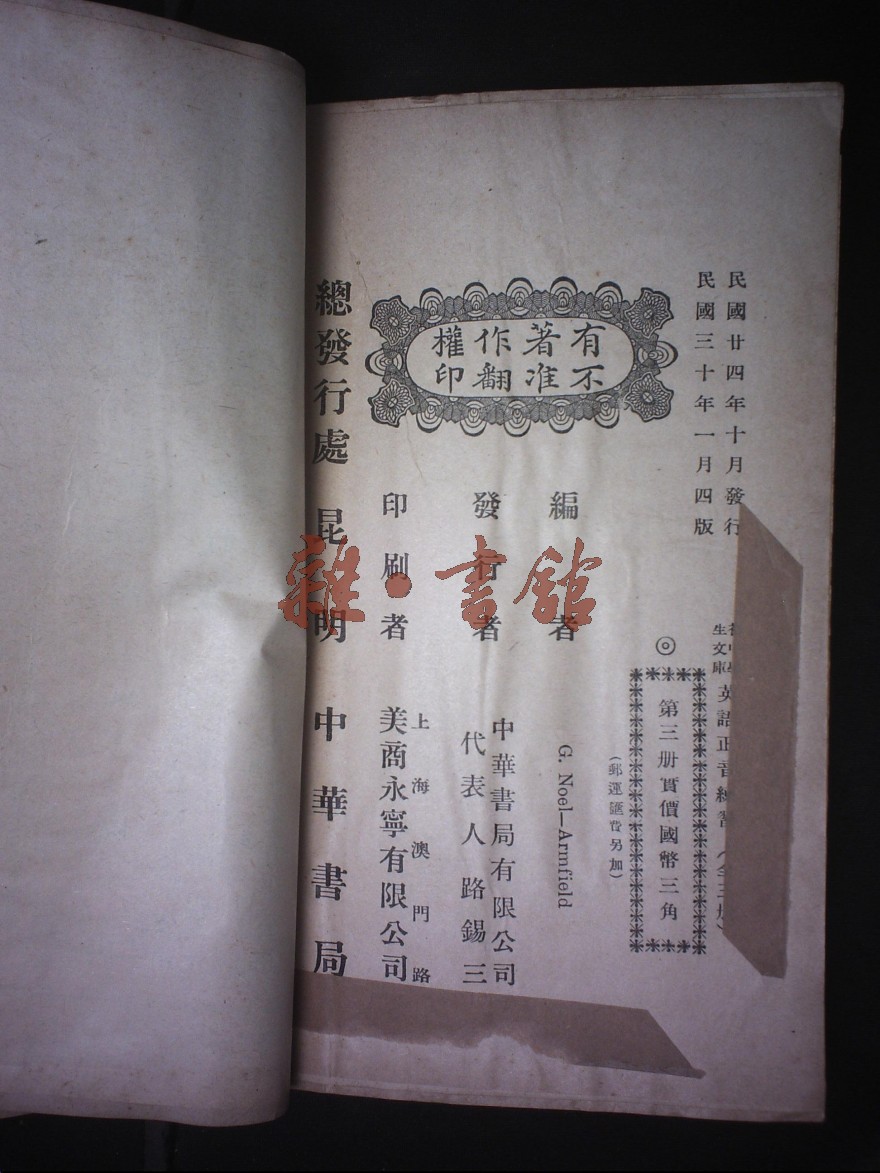 民國廿四年十月發行
民國三十年一月四版
生文庫
英語正音練習
◎
第三册實價國幣三角
(郵運匯費另加)
有著作權
不准翻印
編者
G. Noel—Armfield
發行者
中華書局有限公司
代表人路錫三
印刷者
上海澳門路
美商永寧有限公司
總發行處 昆明中華書局
雜·書館